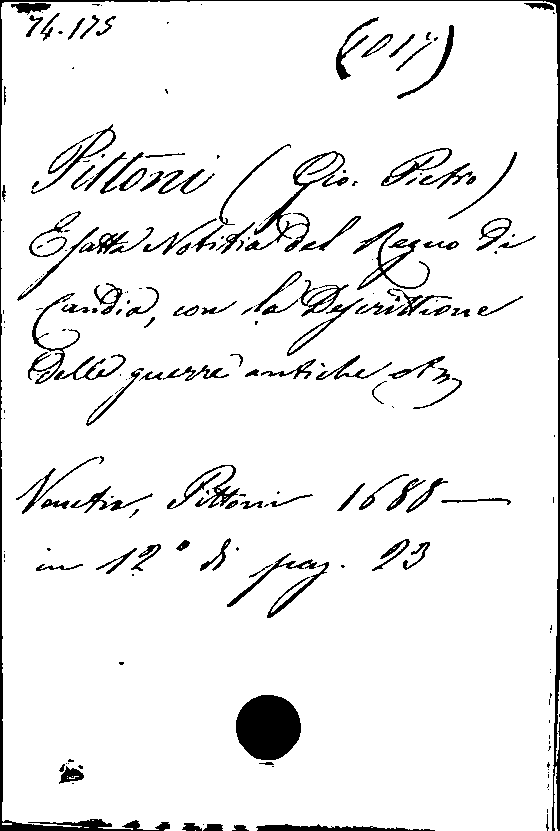 74.175
(1017)
Pittoni (Gio: Pietro)
Esatta Notitia del Regno di
Candia, con la Descrittione
delle guerre antiche etc
Venetia, Pittoni 1688 —
in 12° di pag. 23